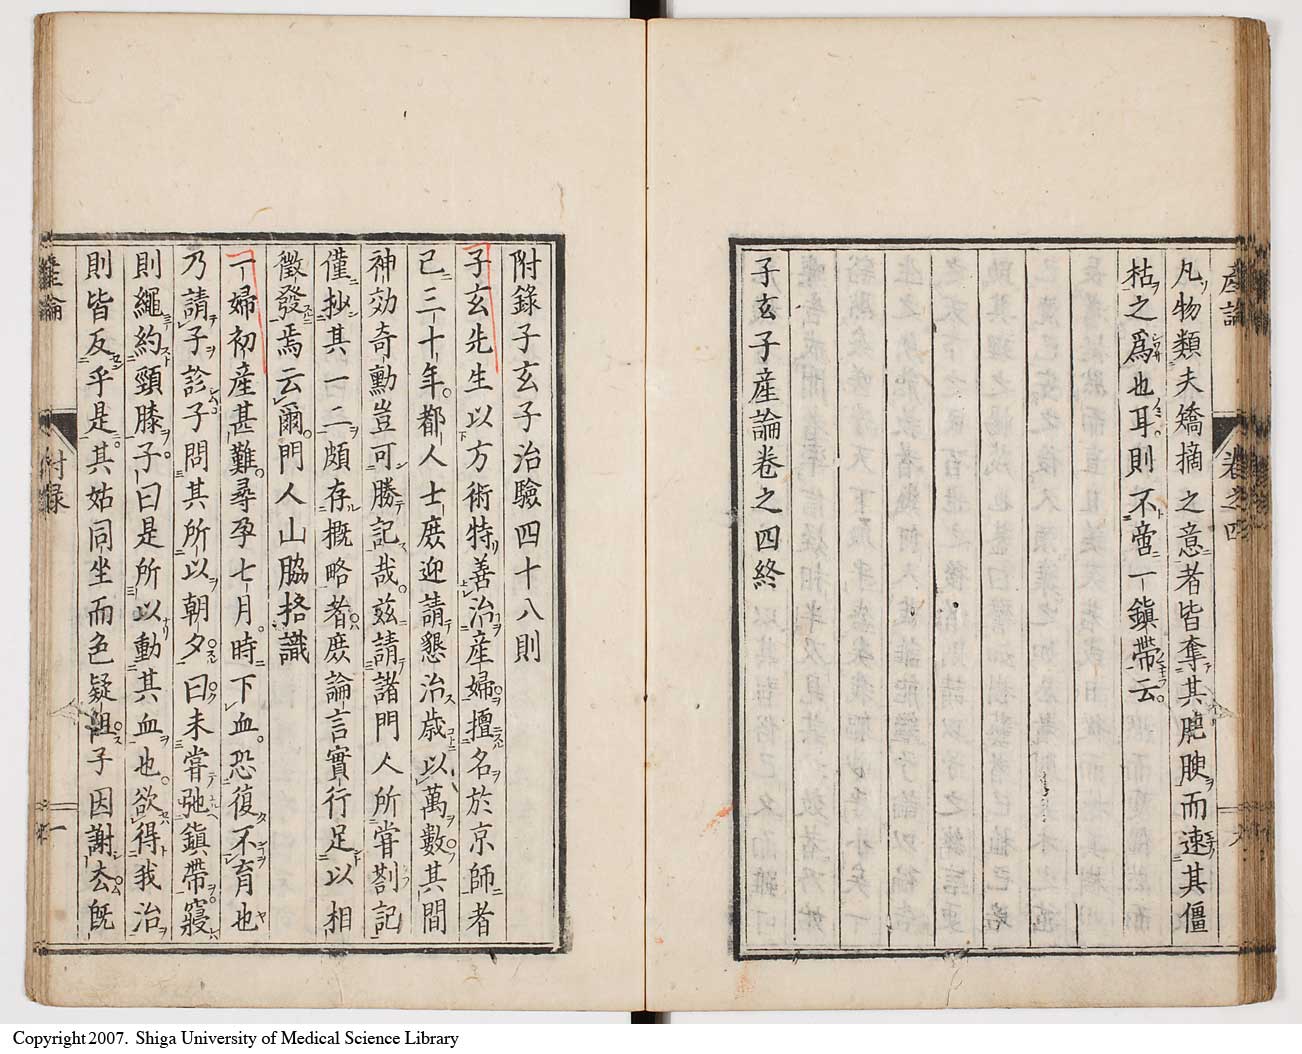 凡物類夫矯摛之意者皆奪其腴而速其僵
枯之爲也耳則不啻一鎭帶云
子玄子產論卷之四終
產論
卷之四
附錄子玄子治驗四十八則
子玄先生以方術特善治產婦擅名於京師者
已三十年都人士庶迎請懇治歲以萬數其間
神効奇勳豈可勝記哉茲請諸門人所嘗劄記
僅抄其一二頗存概略者庶論言實行足以相
徵發焉云爾門人山脇格識
一婦初產甚難尋孕七月時下血恐復不育也
乃請子診子問其所以朝夕曰未嘗弛鎭帶寢
則繩約頸膝子曰是所以動其血也欲得我治
則皆反乎是其姑同坐而色疑沮子因謝去旣
產論
附錄
一
Copyright 2007. Shiga University of Medical Science Library